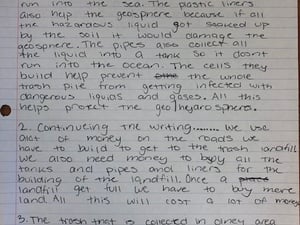 run into the sea. The plastic liners
also help the geosphere because if all
the hazardous liquid got soaked up
by the soil it would damage the
geosphere. The pipes also collect all
the liquid into a tank so it don't
run into the ocean. The cells they
build help prevent the whole
trash pile from getting infected with
dangerous liquids and gases. All this
helps protect the geo/hydrosphere.
2. Continueing the writing....... we use
alot of money on the roads we
have to build to get to the trash landfill
we also need money to buy all the
tanks and pipes and liners for the
building of the landfill. Once a
landfill get full we have to buy more
land. All this will cost a lot of money
3. The trash that is collected in olney area